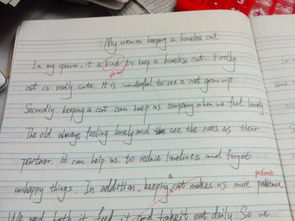 My view on keeping a homeless cat
In my opinion, it is kind to keep a homeless cat. Firstly
cat is really cute. It is wonderful to see a cat grow up
Secondly, keeping a cat can keep us company when we feel lonely
The old always feeling lonely and see the cats as their
partner. it can help us to reduce loneliness and forget
unhappy things. In addition, keeping a cat makes us more patience
patient
We need both it feed it and take it out daily. So we